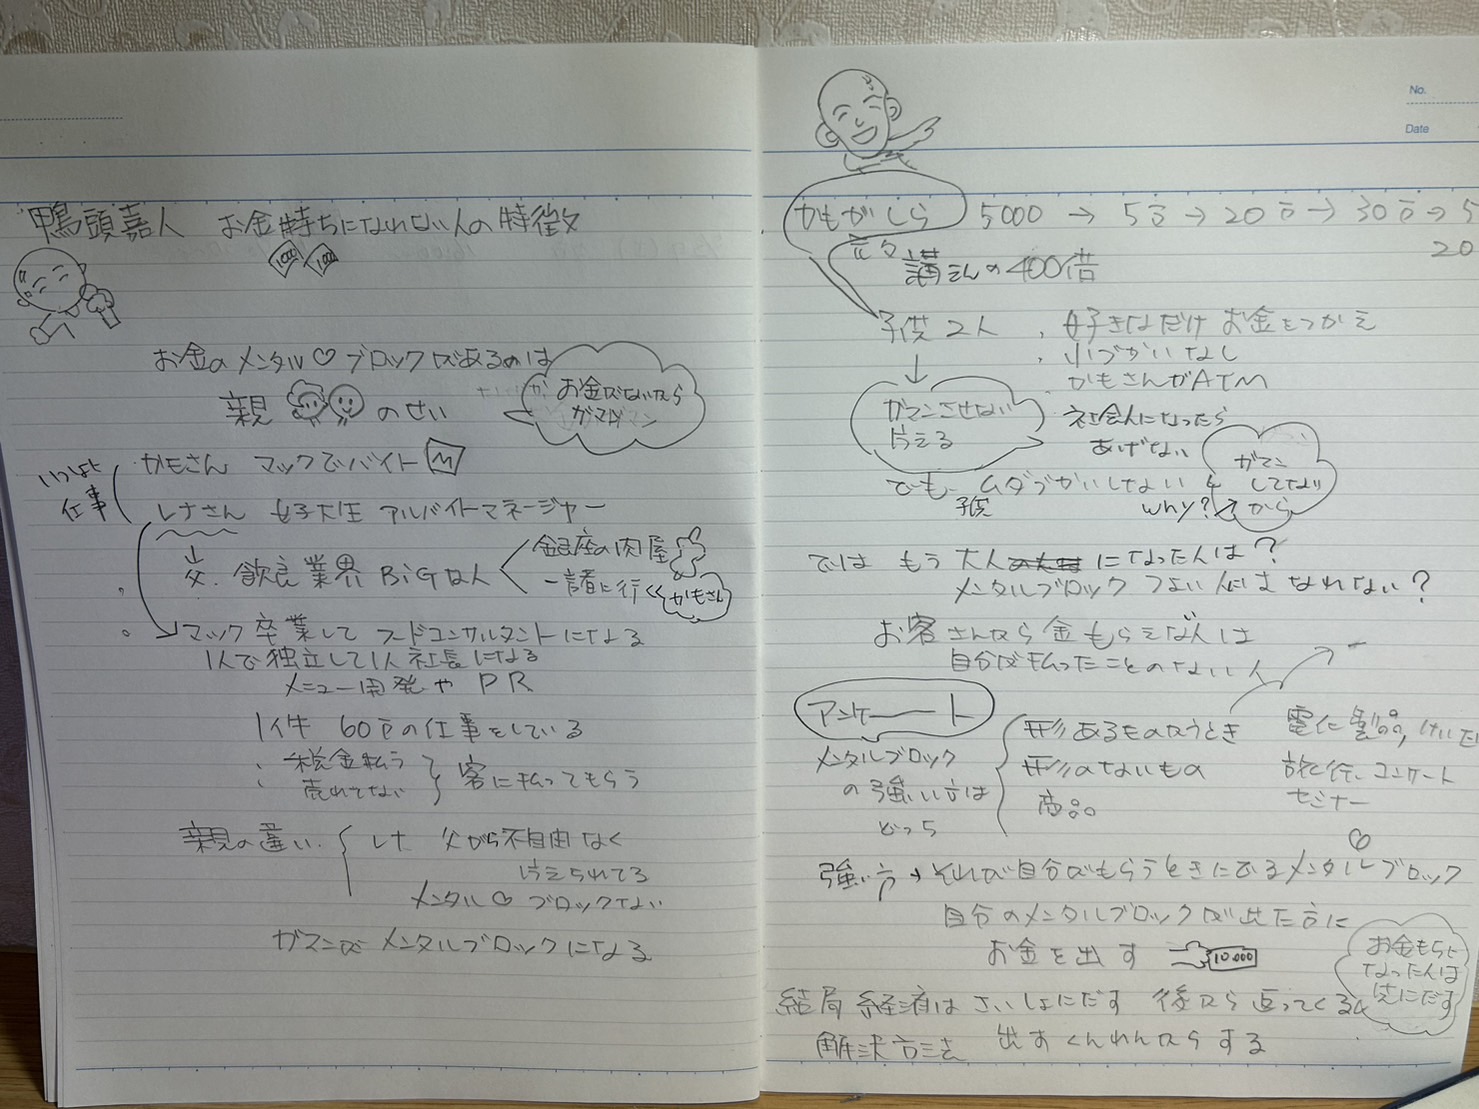 鴨頭嘉人 お金持ちになれない人の特徴
1000 1000
お金のメンタル♡ブロックがあるのは
親 のせい
お金がないから
ガマン
いっしょに
仕事
かもさん マックでバイト M
レナさん 女子大生 アルバイトマネージャー
↓
父. 飲食業界 BIGな人
銀座の肉屋
一諸に行く
かもさん
マック卒業して フードコンサルタントになる
1人で独立して1人社長になる
メニュー開発や PR
1件 60万の仕事をしている
税金払う
売れてない
客に払ってもらう
親の違い
レナ 父から不自由なく
与えられてる
メンタル♡ブロックない
ガマンが メンタルブロックになる
No.
Date
かもがしら 5000 → 5万 → 20万 → 30万 → 5
元々 講さんの400倍
20
子供2人 、好きなだけお金をつかえ
、小づかいなし
、かもさんがATM
↓
ガマンさせない
与える
社会人になったら
あげない
でも ムダづかいしない
子供
why? →
ガマン
してない
から
では もう大人になった人は?
メンタルブロック つよい人にはなれない?
お客さんから金もらえな人は
自分が払ったことのない人
アンケート
メンタルブロック
の強い方は
どっち
形あるもの買うとき 電化製品,
形のないもの 旅行、コンサート
商品 セミナー
強い方→それが自分がもらうときにでるメンタルブロック
自分のメンタルブロックが出た方に
お金を出す 10.000
お金もちに
なった人は
先にだす
結局 経済は さいしょにだす 後から返ってくる
解決方法 出すくんれんからする